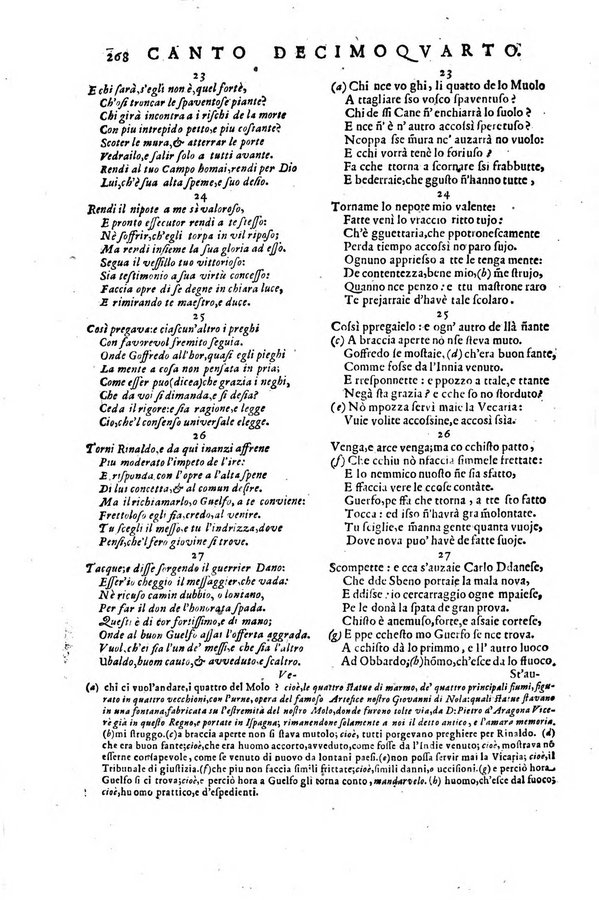 268 CANTO DECIMOQVARTO.
23
E chi sarà, s'egli non è, quel forte,
Ch'osi troncar le spaventose piante?
Chi girà incontra a i rischi de la morte
Con piu intrepido petto, e piu costante?
Scoter le mura, & atterrar le porte
Vedrailo, e salir solo a tutti avante.
Rendi al tuo Campo homai, rendi per Dio
Lui, ch'è sua alta speme, e suo desio.
24
Rendi il nipote a me sì valoroso,
E pronto essecutor rendi a te stesso:
Nè soffrir, ch'egli torpa in vil riposo;
Ma rendi insieme la sua gloria ad esso.
Segua il vessillo tuo vittorioso:
Sia testimonio a sua virtù concesso:
Faccia opre di se degne in chiara luce,
E rimirando te maestro, e duce.
25
Così pregava: e ciascun'altro i preghi
Con favorevol fremito seguia.
Onde Goffredo all'hor, quasi egli pieghi
La mente a cosa non pensata in pria;
Come esser può (dicea) che grazia i neghi,
Che da voi si dimanda, e si desia?
Ceda il rigore: e sia ragione, e legge
Ciò, che'l consenso universale elegge.
26
Torni Rinaldo, e da qui inanzi affrene
Piu moderato l'impeto de l'ire:
E risponda con l'opre a l'alta spene
Di lui concetta, & al comun desire.
Ma il richiamarlo, o Guelfo, a te conviene:
Frettoloso egli fia, credo, al venire.
Tu scegli il messo, e tu l'indrizza, dove
Pensi, che'l fero giovine si trove.
27
Tacque; e disse sorgendo il guerrier Dano:
Esser'io cheggio il messaggier, che vada:
Nè ricuso camin dubbio, o lontano,
Per far il don de l'honorata spada.
Questi è di cor fortissimo, e di mano;
Onde al buon Guelfo assai l'offerta aggrada.
Vuol, ch'ei sia l'un de' messi, e che sia l'altro
Ubaldo, huom cauto, & avveduto, e scaltro.
Ve-
23
(a) Chi nce vo ghi, li quatto de lo Muolo
A ttagliare sso vosco spaventuso?
Chi de ssi Cane n̄'enchiarrà lo suolo?
E nce n̄'è n̄'autro accossì speretuso?
Ncoppa sse m̄ura nc'auzarrà no vuolo:
E cchi vorrà tenè lo foriuso?
Fa cche ttorna a scornare ssi frabbutte,
E bederraie, ch'e ggusto n̄'hanno tutte,
24
Torname lo nepote mio valente:
Fatte venì lo vraccio ritto tujo:
Ch'è gguettaria, che ppotronescamente
Perda tiempo accossì no pare sujo.
Ognuno appriesso a tte le tenga mente:
De contentezza, bene mio, (b) m̄e strujo,
Quanno nce penzo: e ttu mastrone raro
Te prejarraie d'havè tale scolaro.
25
Cossì ppregaielo: e ogn'autro de llà n̄ante
(c) A braccia aperte nò nse steva muto.
Goffredo se mostaie, (d) ch'era buon fante,
Comme fosse da l'Innia venuto.
E rresponnette: e ppozzo a ttale, e ttante
Negà sta grazia? e cchi sso storduto?
(e) Nò mpozza servì maie la Vecaria:
Vuie volite accossine, e accossì sia.
26
Venga, e arce venga; ma co cchisto patto,
(f) Che cchiu nò nfaccia simmele frettate:
E lo nemmico nuosto n̄e sia sfatto,
E ffaccia vere le ccose contate.
Guerfo, pe ffa che ttorna, a tte sto fatto
Tocca: ed isso n̄'havrà gra m̄olontate.
Tu sciglie, e m̄anna gente quanta vuoje,
Dove nova può' havè de fatte suoje.
27
Scompette: e cca s'auzaie Carlo Ddanese,
Che dde Sbeno portaie la mala nova,
E ddisse: io cercarraggio ogne mpaiese,
Pe le donà la spata de gran prova.
Chisto è anemuso, forte, e assaie cortese,
(g) E ppe cchesto mo Guerfo se nce trova.
Chisto sarrà lo primmo: e ll'autro luoco
Ad Obbardo, (h) hommo, ch'esce da lo fluoco.
St'au-
(a) chi ci vuol'andare, i quattro del Molo? cioè, le quattro statue di marmo, de' quattro principali fiumi, figurato in quattro vecchioni, con l'urne, opera del famoso Artefice nostro Giovanni di Nola: le quali statue stavano
in una fontana, fabbricata su l'estremità del nostro Molo, donde furono tolte via, da D: Pietro d'Aragona Vicerè già in questo Regno, e portate in Ispagna; rimanendone solamente a noi il detto antico, e l'amara memoria.
(b) mi struggo. (c) a braccia aperte non si stava mutolo; cioè, tutti porgevano preghiere per Rinaldo. (d)
che era buon fante; cioè, che era huomo accorto, avveduto, come fosse da l'Indie venuto; cioè, mostrava nō
essere consapevole, come se venuto di nuovo da lontani paesi. (e) non possa servir mai la Vicaria; cioè, il
Tribunale di giustizia. (f) che piu non faccia simili frittate; cioè, simili danni, o uccisioni. (g) e perciò hora
Guelfo si ci trova; cioè, e perciò hora a Guelfo gli torna conto, mandarvelo. (h) huomo, ch'esce dal fuoco;
cioè, huomo prattico, e d'espedienti.